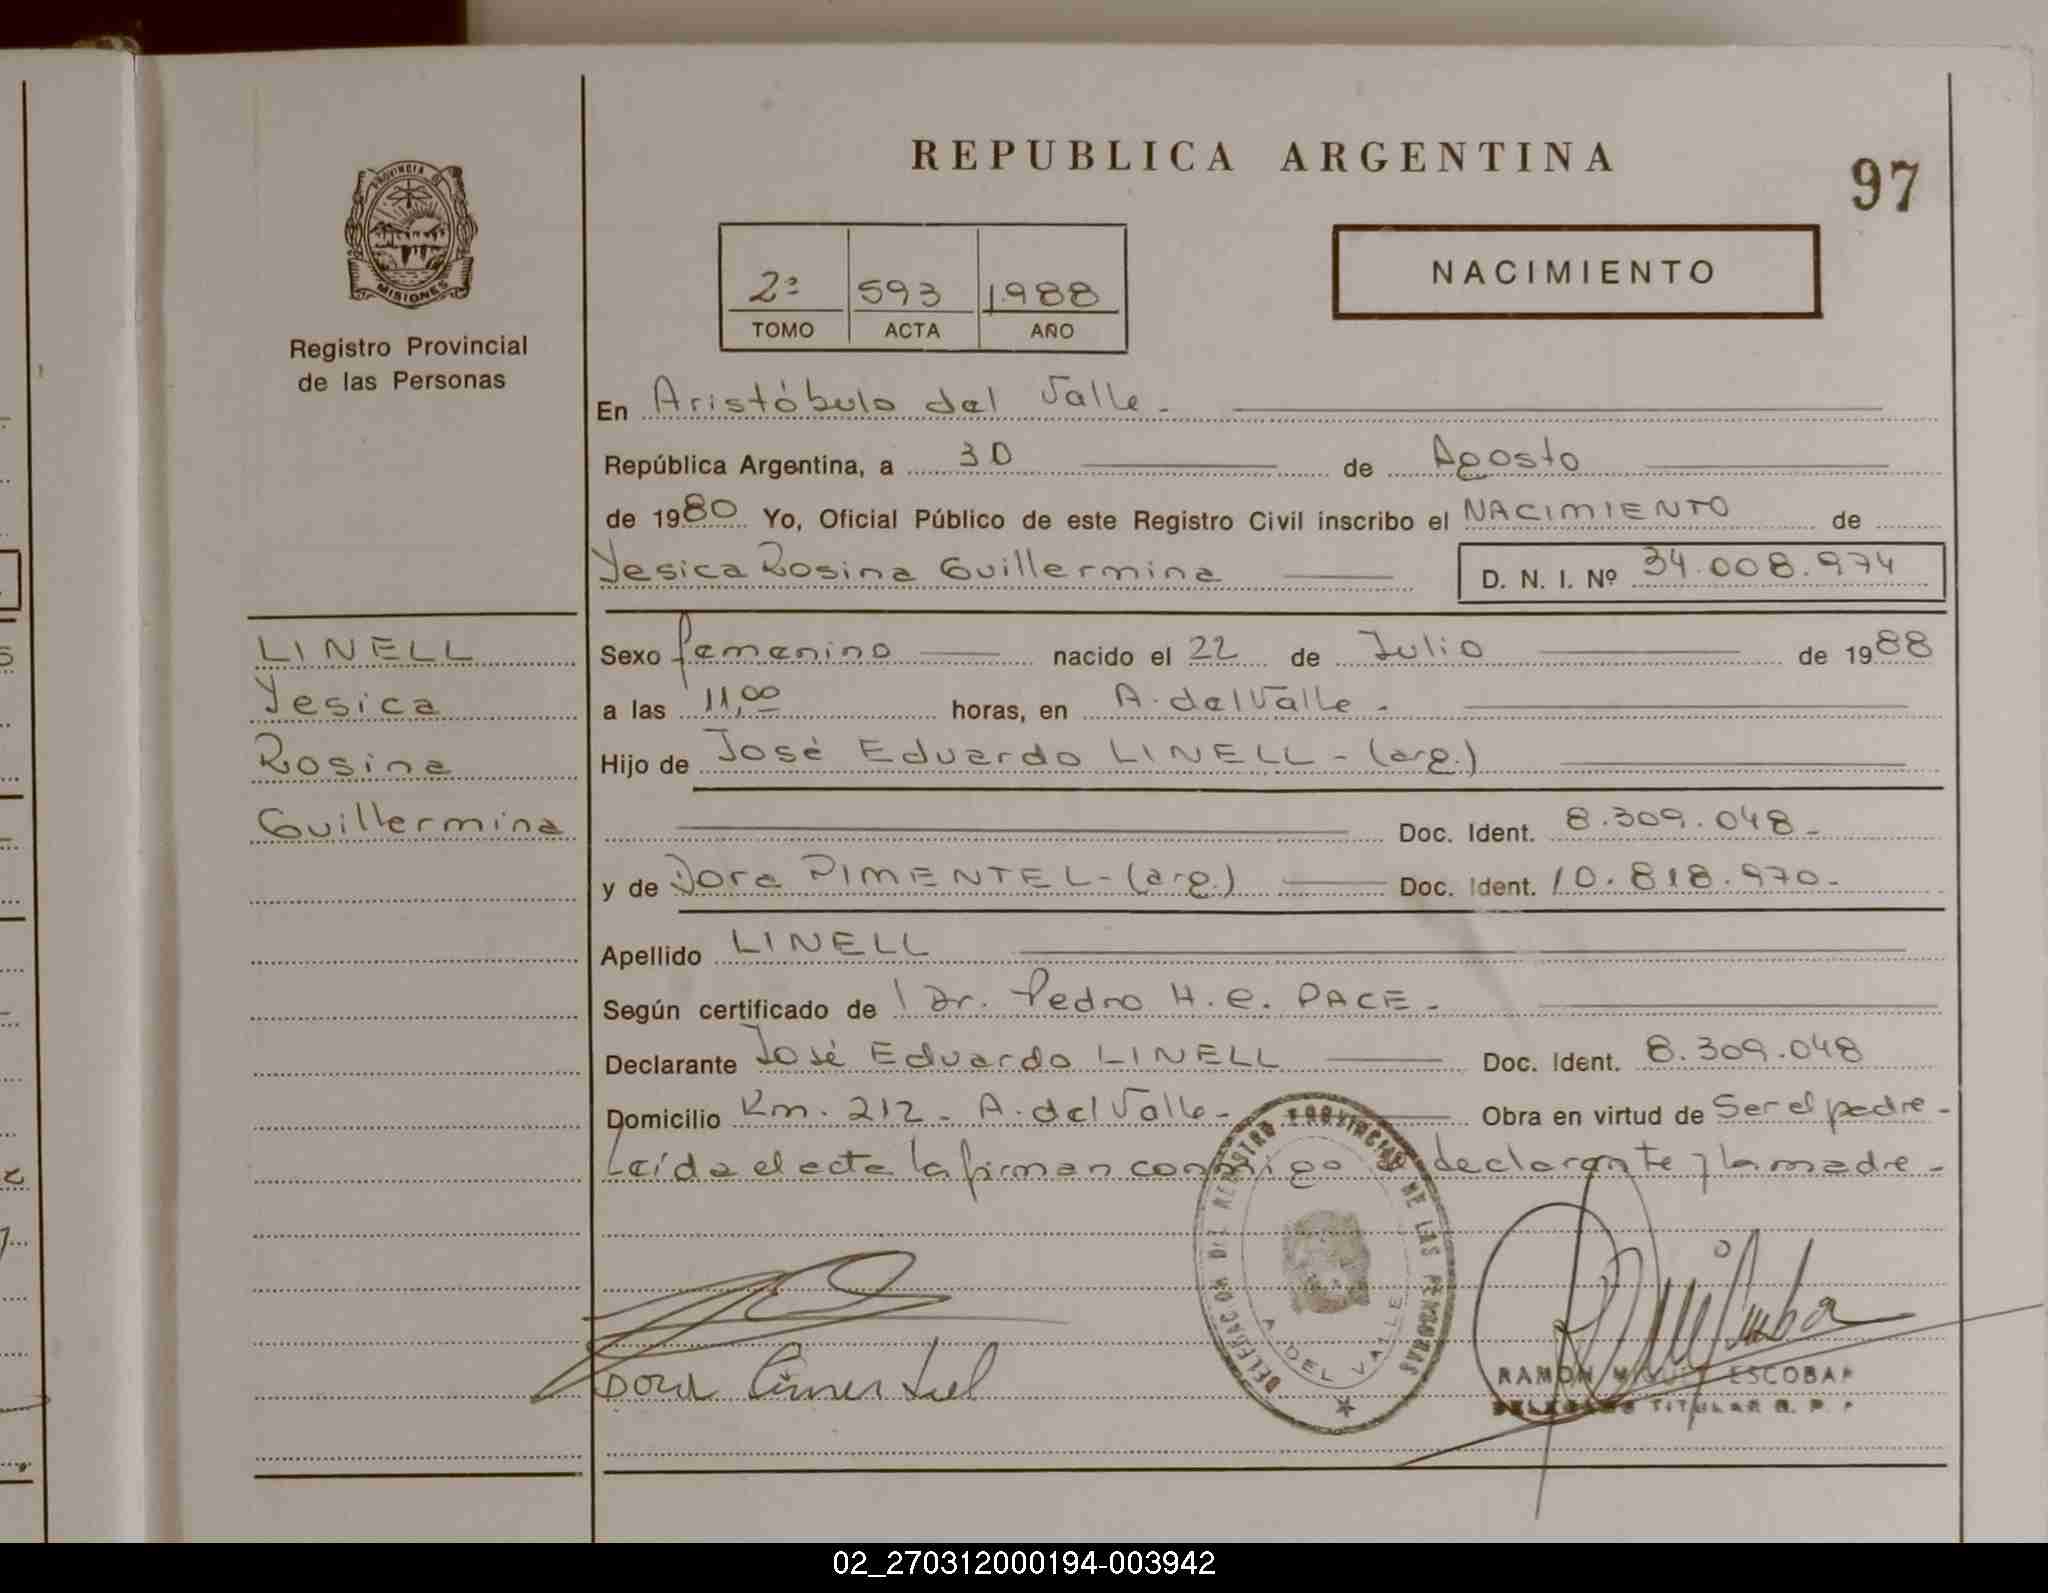 REPUBLICA ARGENTINA
97
PROVINCIA DE
MISIONES
Registro Provincial
de las Personas
2ª 593 1988
TOMO ACTA AÑO
NACIMIENTO
En Aristóbulo del Valle -
República Argentina, a 30 de Agosto
de 1980 Yo, Oficial Público de este Registro Civil inscribo el NACIMIENTO de
Yesica Rosina Guillermina D. N. I. Nº 34.008.974
LINELL
Yesica
Rosina
Guillermina
Sexo femenino nacido el 22 de Julio de 1988
a las 11,00 horas, en A. del Valle -
Hijo de José Eduardo LINELL - (arg.)
Doc. Ident. 8.309.048 -
y de Dora PIMENTEL - (arg.) Doc. Ident. 10.818.970 -
Apellido LINELL
Según certificado de Dr. Pedro H. e. PACE -
Declarante José Eduardo LINELL Doc. Ident. 8.309.048
Domicilio Km. 212 - A. del Valle - Obra en virtud de Ser el padre -
Leída el acta la firman conmigo declarante y la madre -
DELEGACION DEL REGISTRO PROVINCIAL DE LAS PERSONAS
A. DEL VALLE
Dora Pimentel
RAMON MIGUEL ESCOBAR
DELEGADO TITULAR R. P. P.
02_270312000194-003942